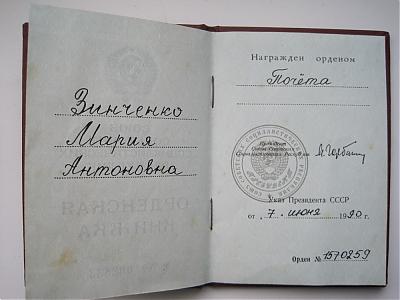 Зинченко
Мария
Антоновна
ОРДЕНСКАЯ
КНИЖКА
Награжден орденом
Почёта
Президент
Союза Советских
Социалистических Республик
М. Горбачёв
Указ Президента СССР
от 7. июня 1990 г.
Орден № 1570259